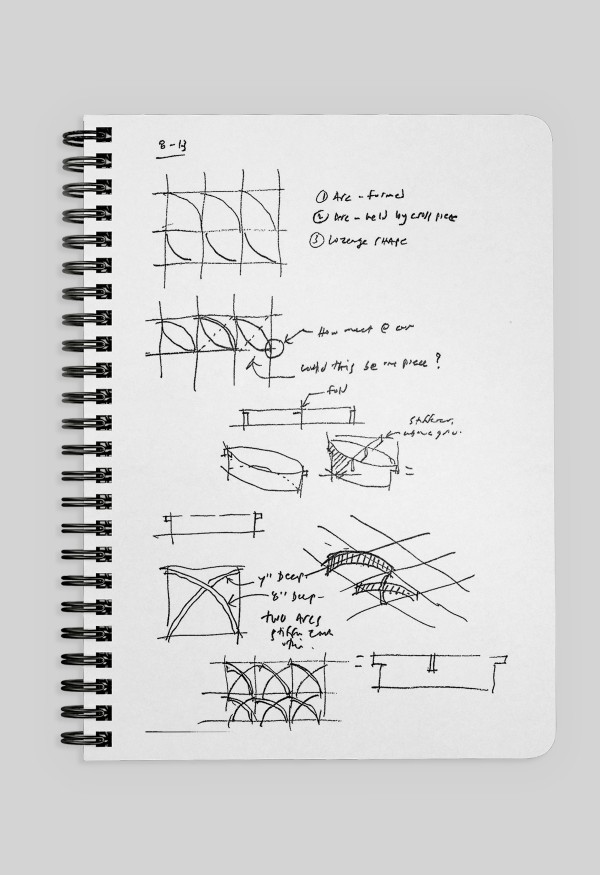 8-13
① Arc - formed
② Arc - held by cross piece
③ Lozenge SHAPE
How meet @
could this be one piece?
fold
Stiffener,
4" Deep-
8" Deep-
two Arcs
stiffen each
other.